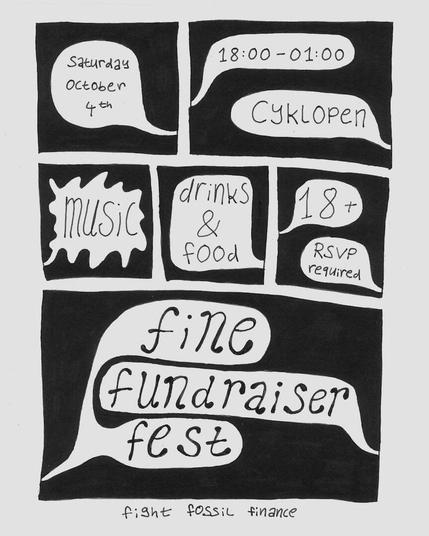 Saturday
October
4th
18:00-01:00
Cyklopen
music
drinks
&
food
18+
RSVP
required
fine
fundraiser
fest
fight fossil finance